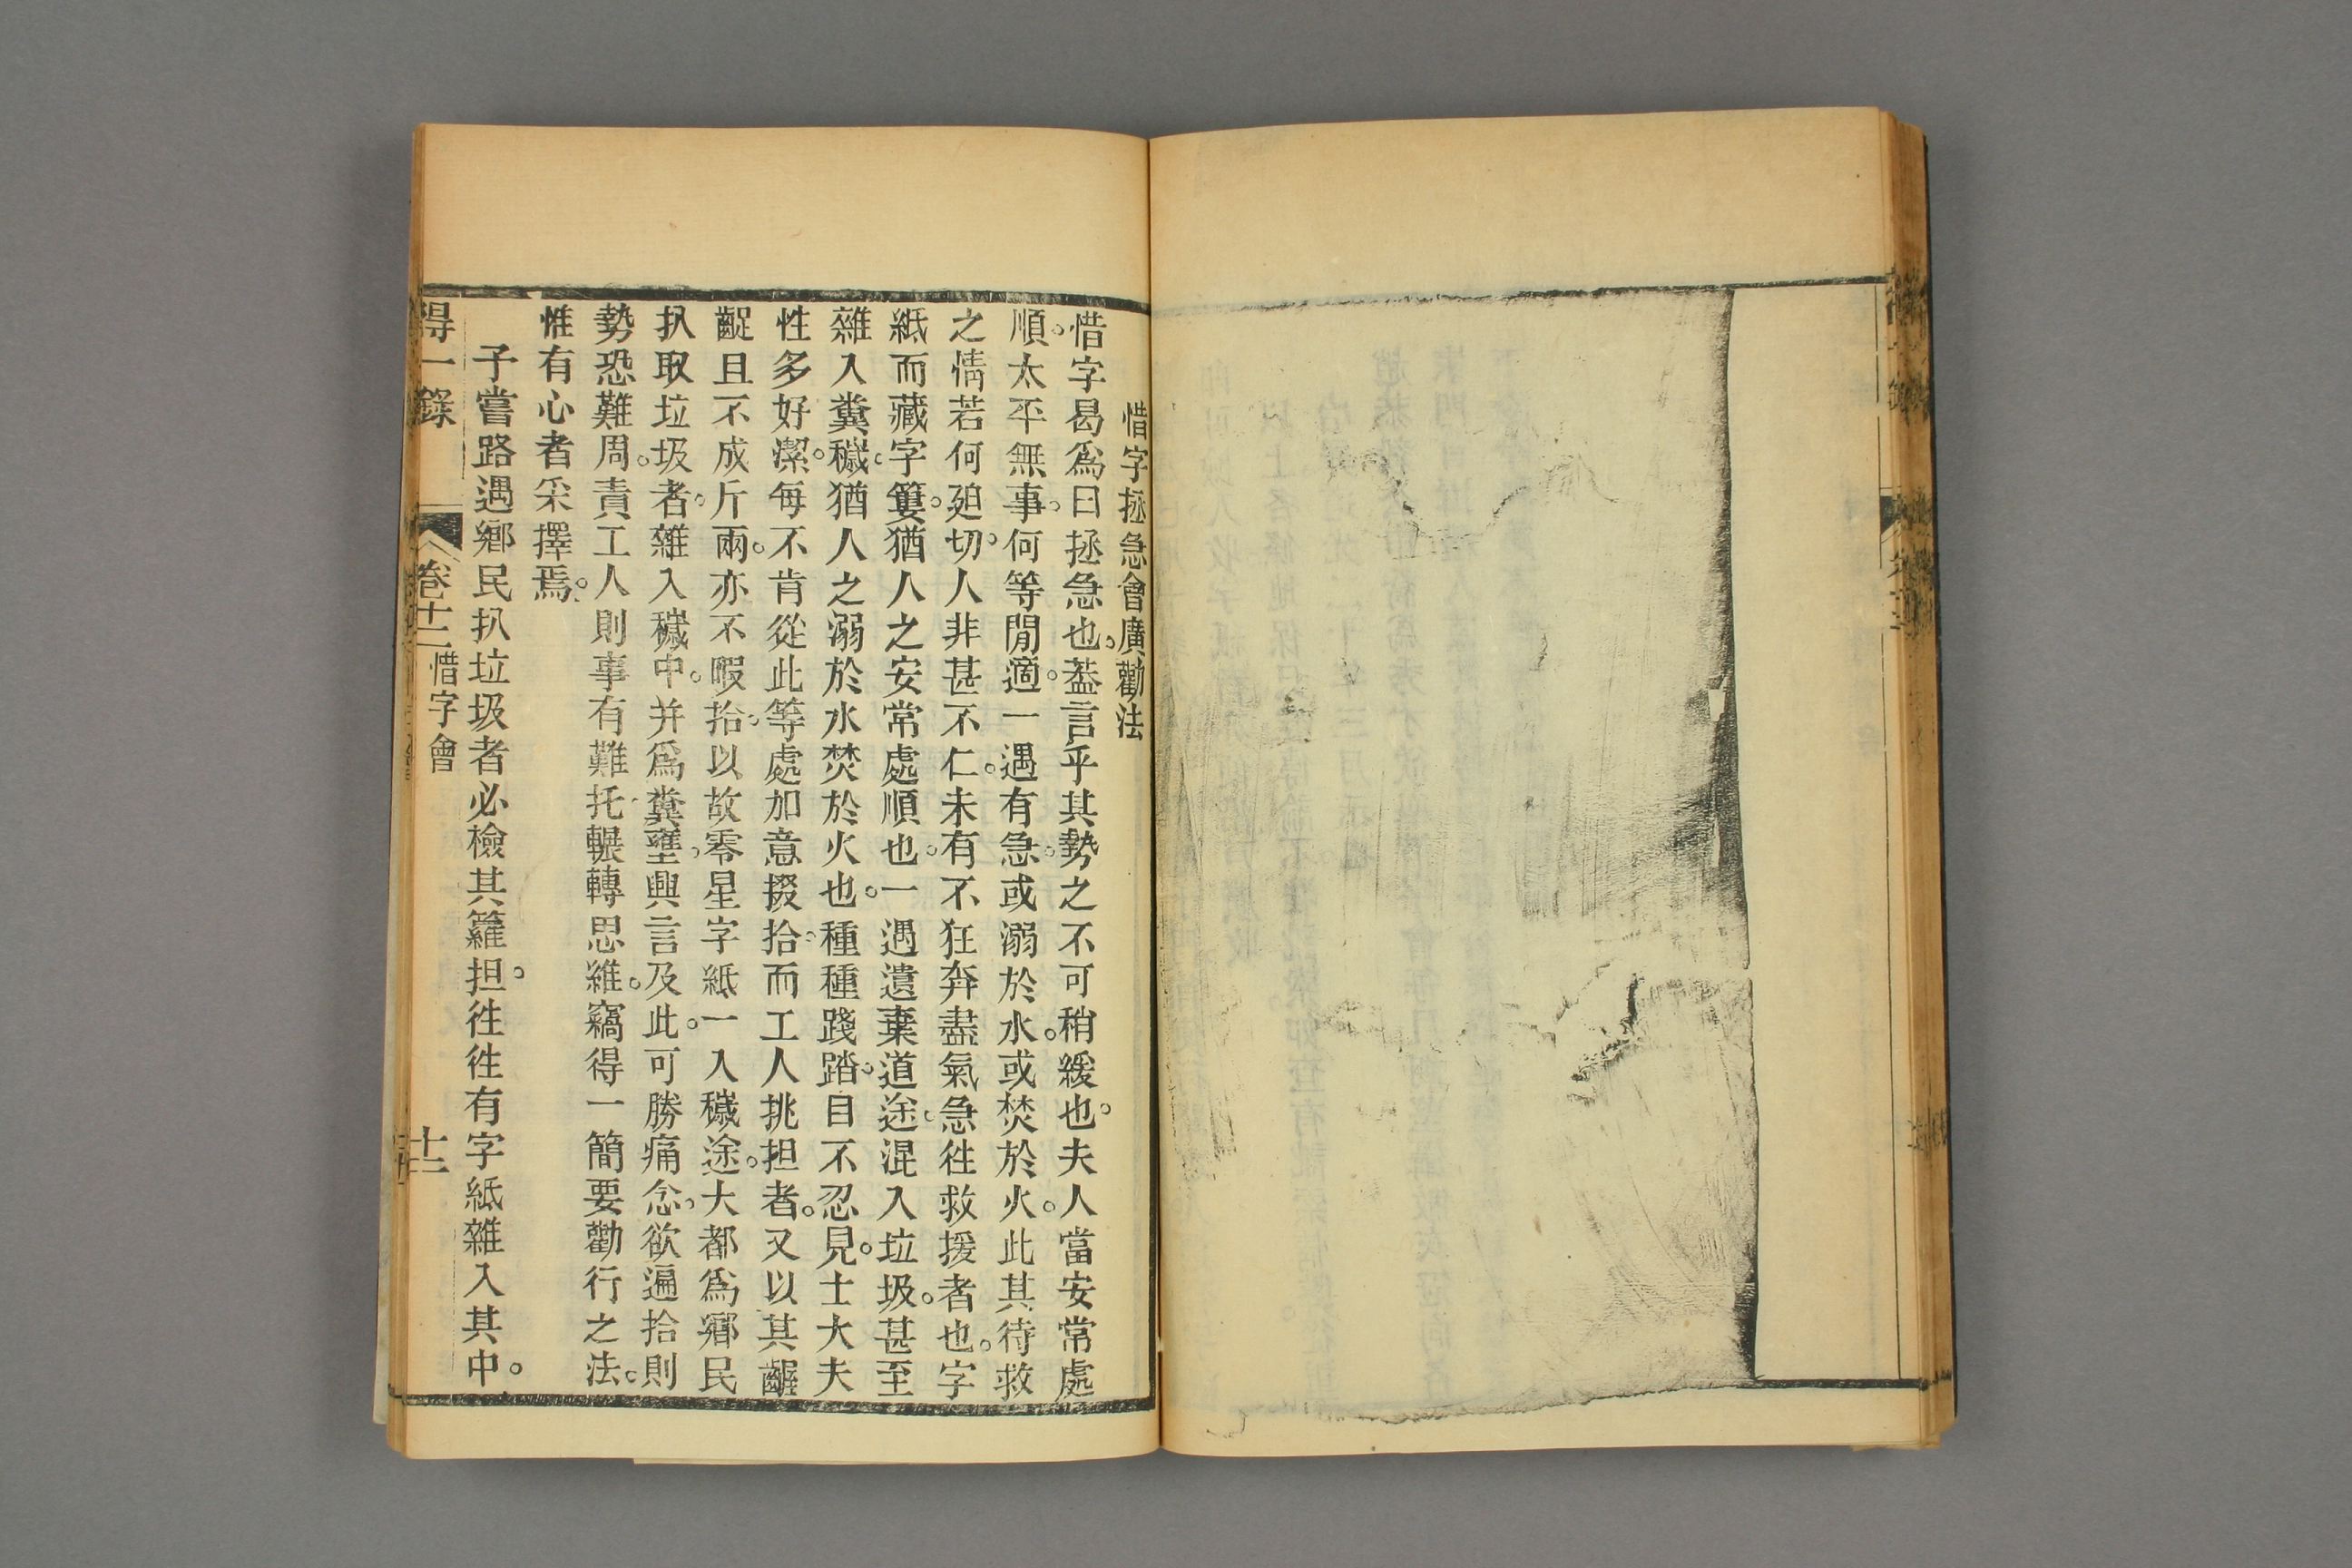 惜字拯急會廣勸法
惜字曷爲曰拯急也。葢言乎其勢之不可稍緩也。夫人當安常處
順。太平無事。何等閒適。一遇有急。或溺於水。或焚於火。此其待救
之情若何廹切。人非甚不仁。未有不狂奔盡氣急徃救援者也。字
紙而藏字簍。猶人之安常處順也。一遇遺棄道途。混入垃圾。甚至
雜入糞穢。猶人之溺於水焚於火也。種種踐踏。目不忍見。士大夫
性多好潔。每不肯從此等處加意掇拾。而工人挑担者。又以其齷
齪且不成斤兩。亦不暇拾。以故零星字紙一入穢途。大都爲鄉民
扒取垃圾者。雜入穢中。并爲糞壅。興言及此。可勝痛念。欲遍拾則
勢恐難周。責工人則事有難托。輾轉思維。竊得一簡要勸行之法。
惟有心者采擇焉。
子嘗路遇鄉民扒垃圾者必檢其籮担。徃徃有字紙雜入其中。
得一錄 卷十二 惜字會 十二